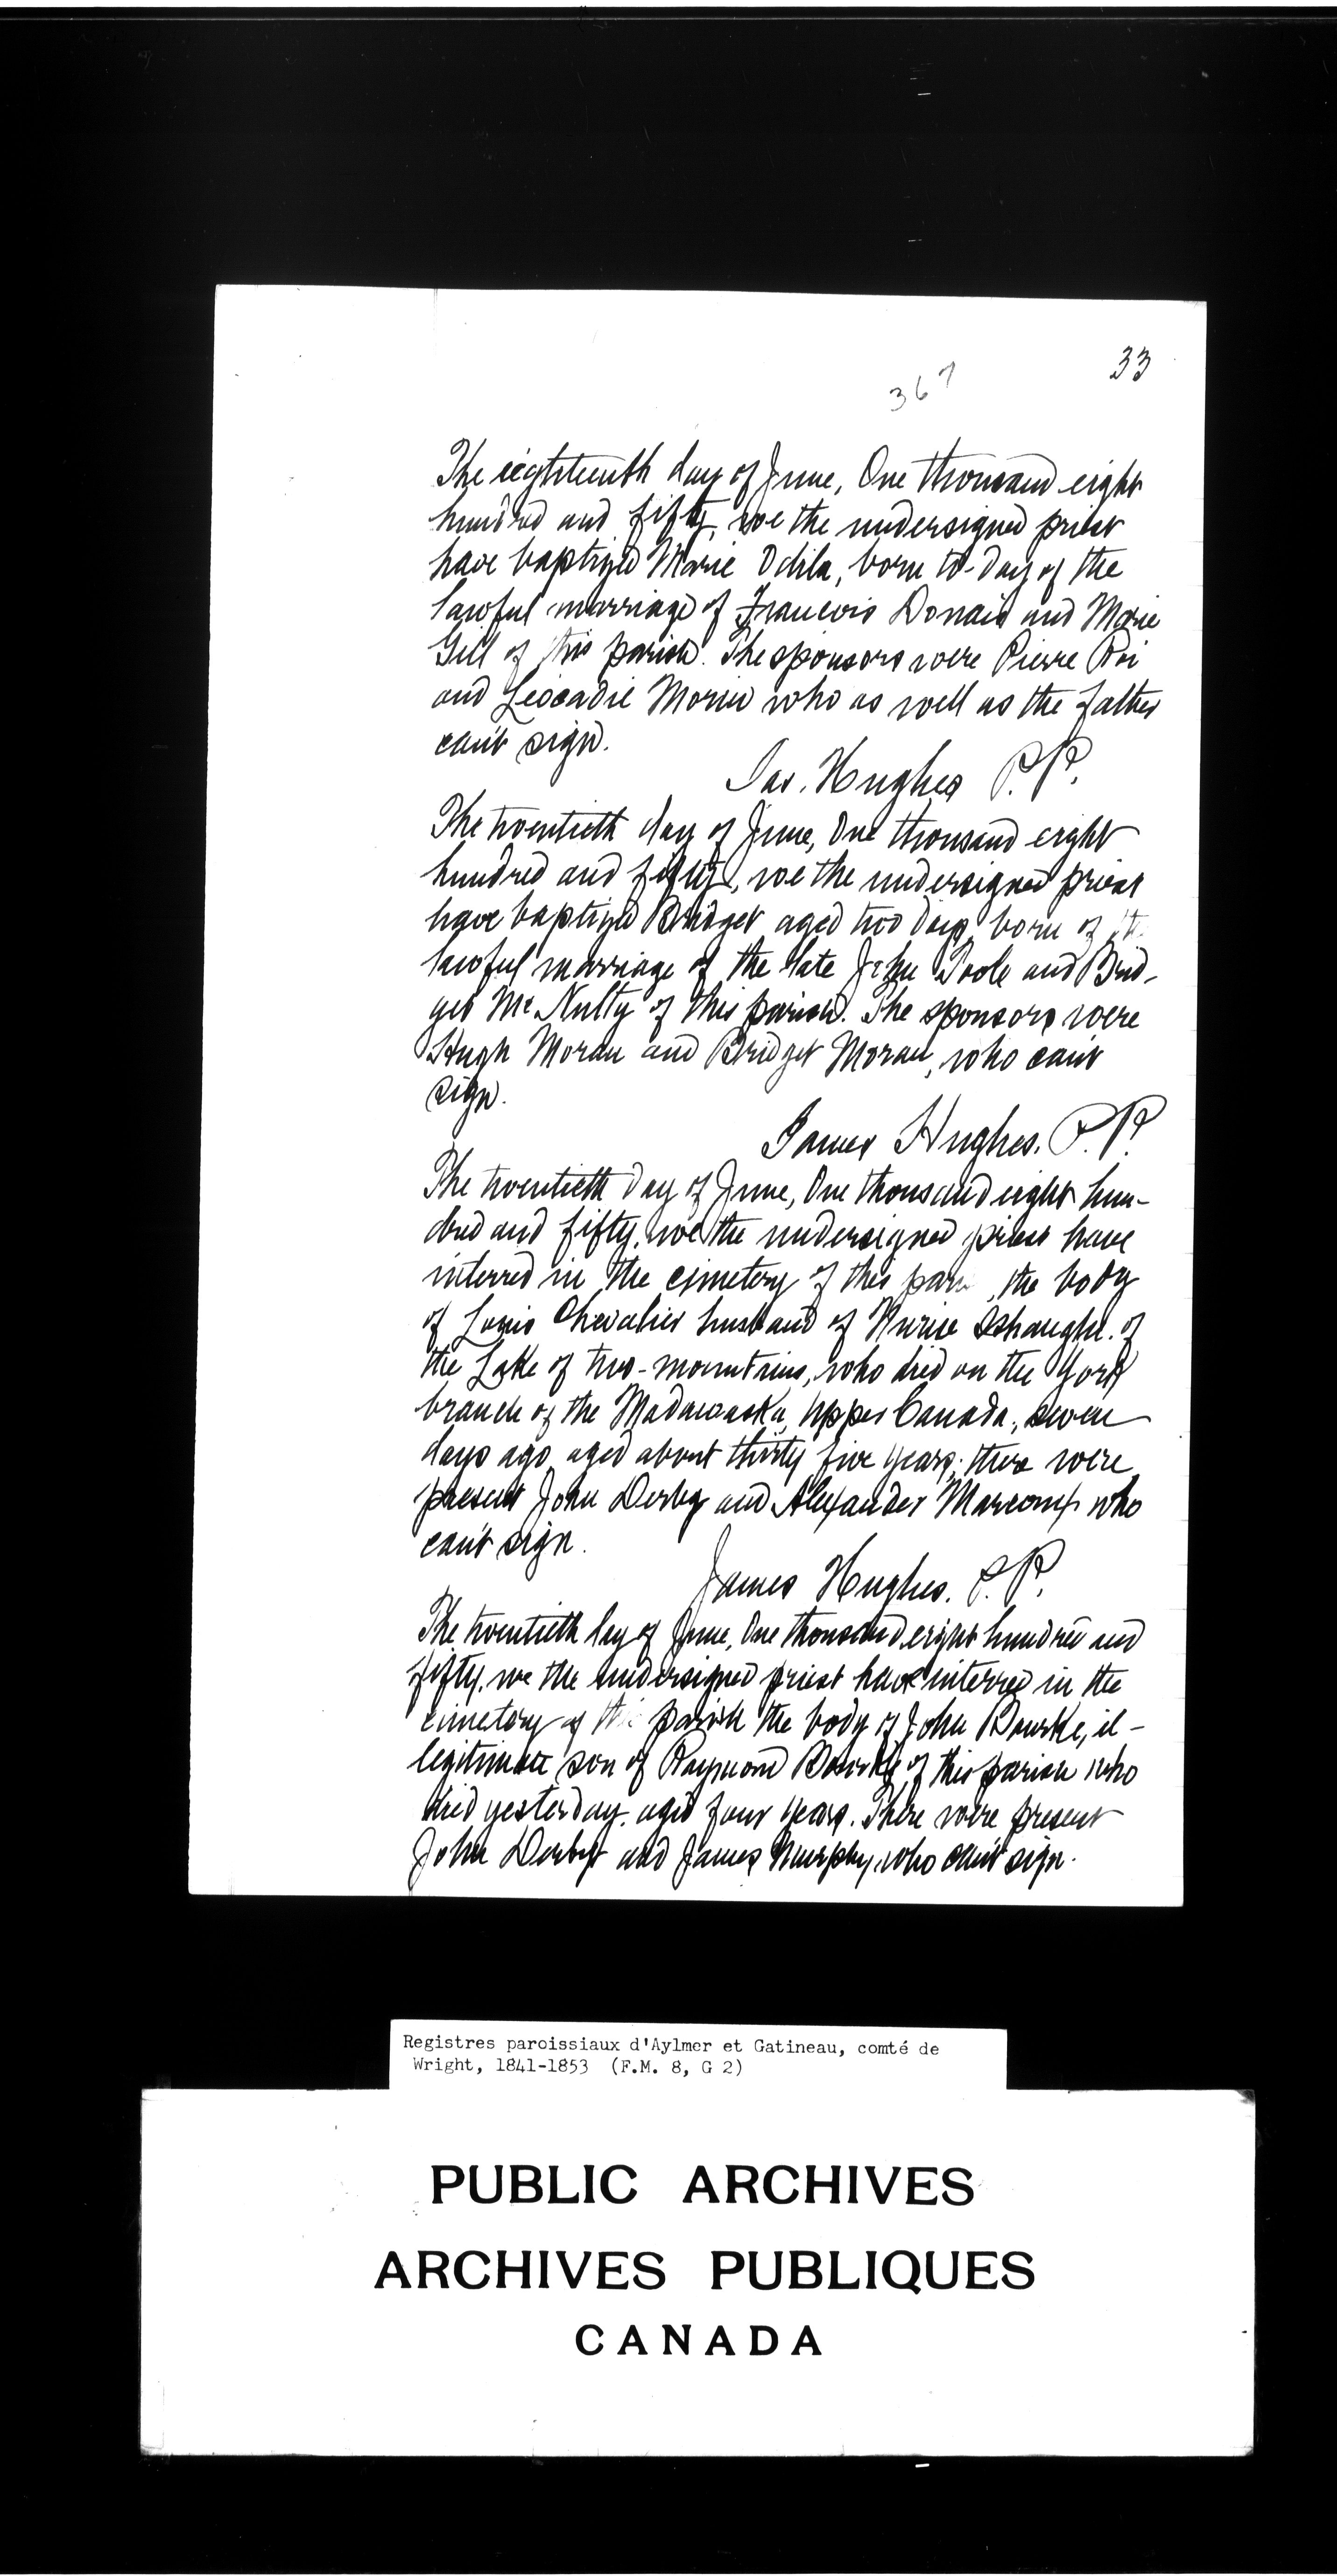 33
367
The eighteenth day of June, One thousand eight
hundred and fifty, we the undersigned priest
have baptized Marie Odila, born to-day of the
lawful marriage of Francois Donais and Marie
Gill of this parish. The sponsors were Pierre Roi
and Leocadie Morin who as well as the father
can't sign.
Jas. Hughes P.P.
The twentieth day of June, One thousand eight
hundred and fifty, we the undersigned priest
have baptized Bridget aged two days born of
lawful marriage of the late John Poole and Brid-
get McNulty of this parish. The sponsors were
Hugh Moran and Bridget Moran, who can't
sign.
James Hughes. P.P.
The twentieth day of June, One thousand eight hun-
dred and fifty, we the undersigned priest have
interred in the cimetery of this the body
of Louis Chevalier husband of Marie of
the Lake of two-mountains, who died on the York
branch of the Madawaska, Upper Canada, seven
days ago aged about thirty five years; there were
present John Derby and Alexander Marcoux who
can't sign.
James Hughes. P.P.
The twentieth day of June, One thousand eight hundred and
fifty, we the undersigned priest have interred in the
cimetery of this parish the body of John Bourke, il-
legitimate son of Raymond Bourke of this parish who
died yesterday, aged four years. There were present
John Derby and James Murphy, who can't sign.
Registres paroissiaux d'Aylmer et Gatineau, comté de
Wright, 1841-1853 (F.M. 8, G 2)
PUBLIC ARCHIVES
ARCHIVES PUBLIQUES
CANADA